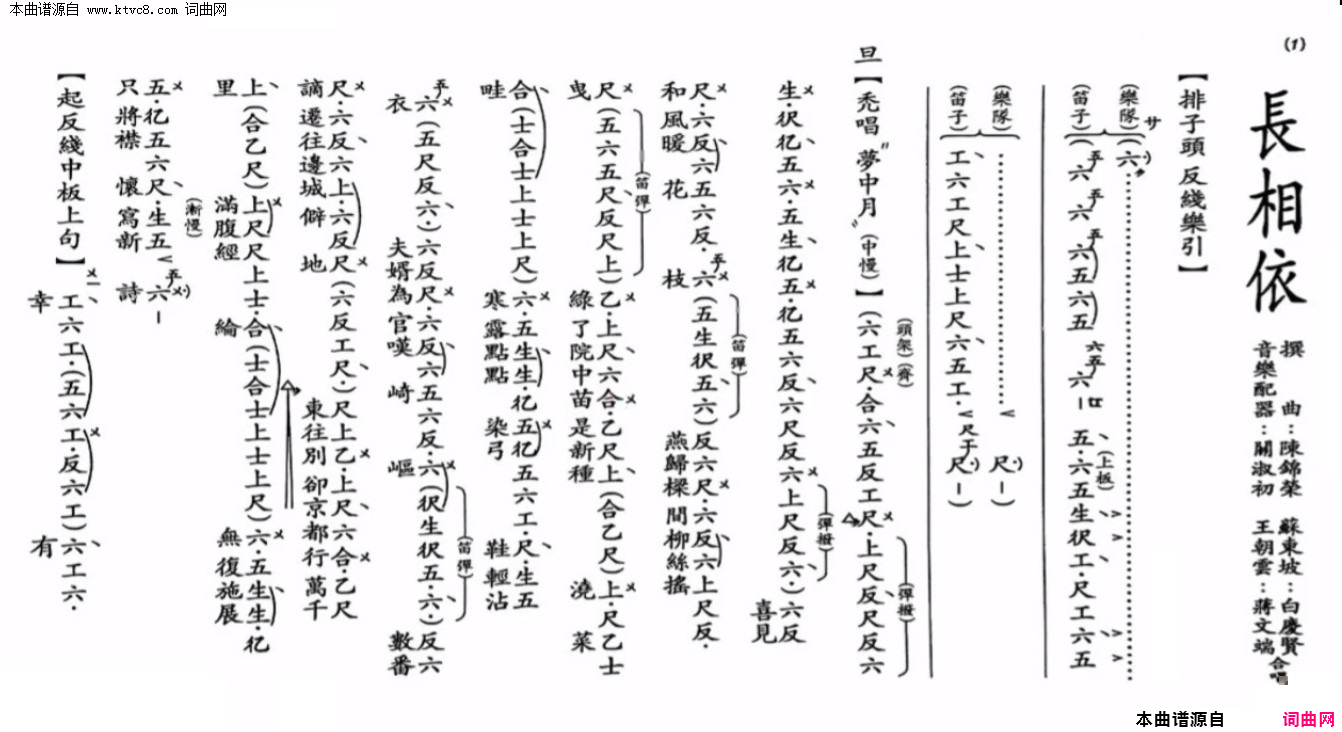 本曲谱源自 www.ktvc8.com 词曲网
(1)
長相依
撰曲：陳錦榮　蘇東坡：白慶賢
音樂配器：關淑初　王朝雲：蔣文端　合唱
【排子頭反綫樂引】
(樂隊) サ 六·)
(笛子) (六 六 六五六五 六 — 五·六五生伬工·尺工六五
(上板)
(樂隊) 尺·) — )
(笛子) 工六工尺上士上尺六五工· 尺于 尺·) — )
(頭架)(齊) (彈撥)
旦【禿唱“夢中月”(中慢)】(六工尺·合六五反工尺·上尺反尺反六
生·伬仜五六·五生仜五·仜五六反六尺反六上尺反六·)六反
(彈撥)
喜見
尺·六反六五六反·六(五生伬五六)反六尺·六反六上尺反·
(笛彈)
和風暖花枝 燕歸樑間柳絲搖
尺(五六五尺反尺上)乙·上尺六合·乙尺上(合乙尺)上·尺乙士
(笛彈)
曳 綠了院中苗是新種 澆菜
合(士合士上士上尺)六·五生生·仜五仜五六工·尺·生五
畦 寒露點點 染弓鞋輕沾
六(五尺反六·)六反尺·六反六五六反·六(伬生伬五·六·)反六
(笛彈)
衣 夫婿為官嘆崎嶇 數番
尺·六反六上·六反尺(六反工尺·)尺上乙·上尺六合·乙尺
謫遷往邊城僻地 東往別卻京都行萬千
上(合乙尺)上尺尺上士·合(士合士上士上尺)六·五生生·仜
里 滿腹經綸 無復施展
五·仜五六尺·生五六·) —
(漸慢)
只將襟懷寫新詩
【起反綫中板上句】工六工·(五六工·反六工)六工六·
幸 有
本曲谱源自 词曲网